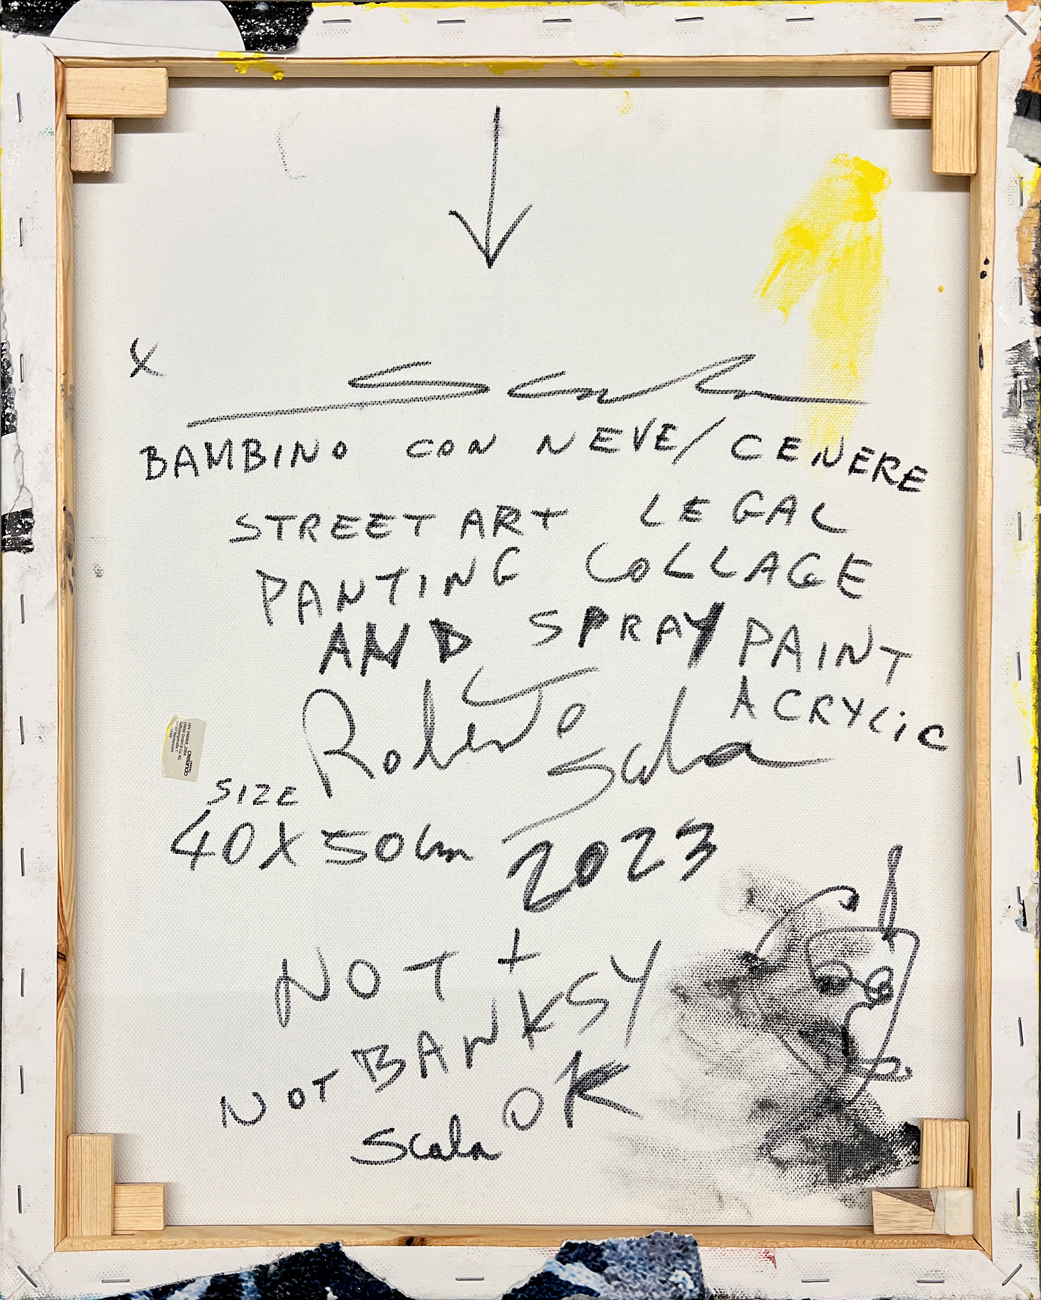 X
Scala
BAMBINO CON NEVE/CENERE
STREET ART LEGAL
PANTING COLLAGE
AND SPRAY PAINT
ACRYLiC
Roberto
Scala
SIZE
40X50cm 2023
NOT +
NOT BANKSY
OK
Scala